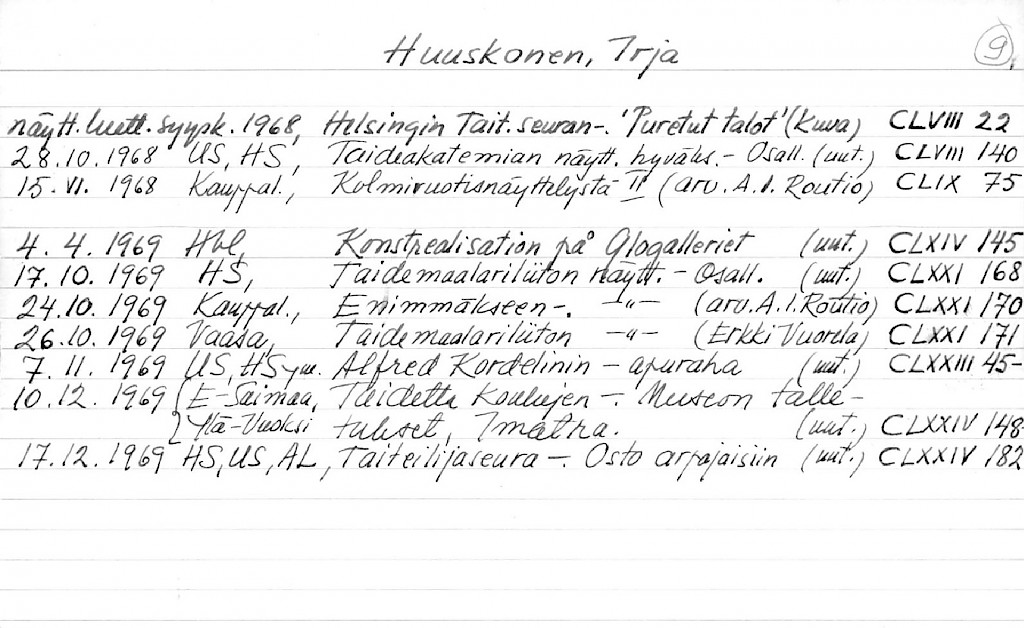 Huuskonen, Irja 9.
näytt. luett. syysk. 1968, Helsingin Tait. seuran -. 'Puretut talot' (kuva) CLVIII 22
28.10.1968 US, HS, Taideakatemian näytt. hyväks. - Osall. (uut.) CLVIII 140
15.VI.1968 Kauppal., Kolmivuotisnäyttelystä II (arv. A.I. Routio) CLIX 75
4.4.1969 Hbl, Konstrealisation på Glogalleriet (uut.) CLXIV 145
17.10.1969 HS, Taidemaalariliiton näytt. - Osall. (uut.) CLXXI 168
24.10.1969 Kauppal., Enimmäkseen -. -"- (arv. A.I. Routio) CLXXI 170
26.10.1969 Vaasa, Taidemaalariliiton -"- (Erkki Vuorela) CLXXI 171
7.11.1969 US, HS ym. Alfred Kordelinin - apuraha (uut.) CLXXIII 45-
10.12.1969 E-Saimaa, Taidetta kouluien -. Museon talle-
Ylä-Vuoksi tukset, Imatra. (uut.) CLXXIV 148-
17.12.1969 HS, US, AL, Taiteilijaseura -. Osto arpajaisiin (uut.) CLXXIV 182